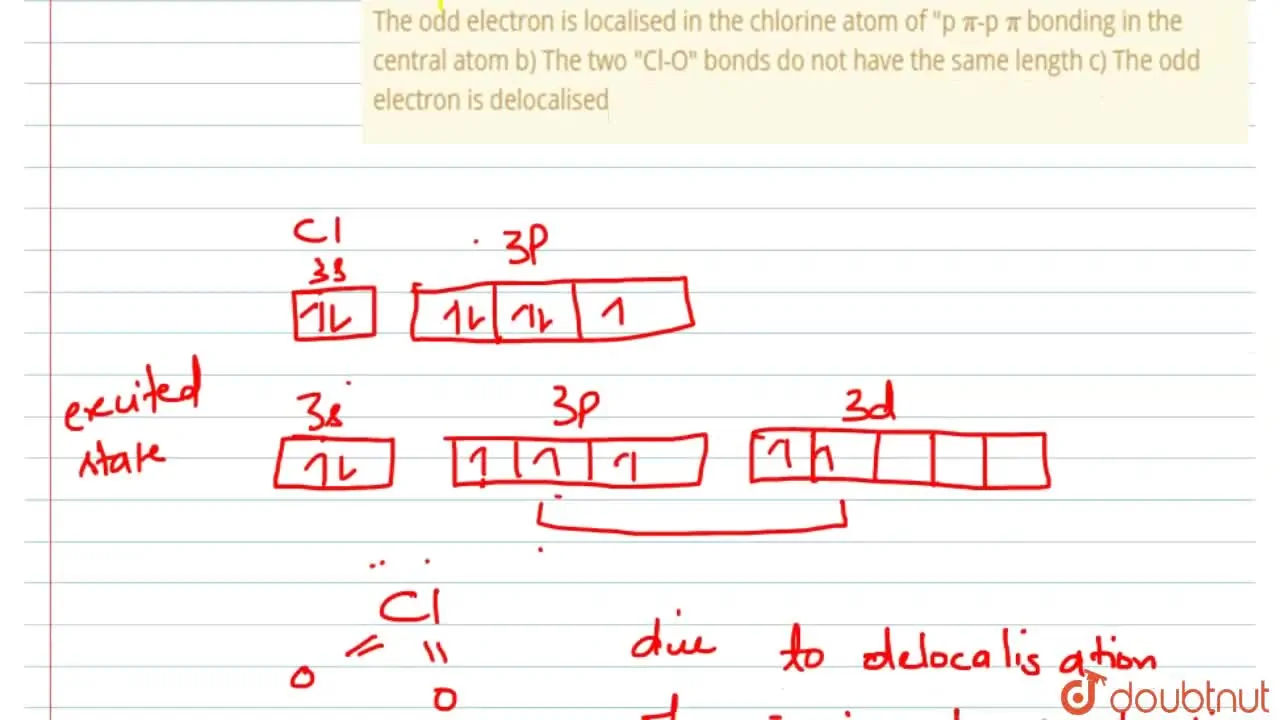 The odd electron is localised in the chlorine atom of "p π-p π bonding in the
central atom b) The two "Cl-O" bonds do not have the same length c) The odd
electron is delocalised
Cl
3s
3p
excited
state
3s
3p
3d
Cl
O
O
due to delocalisation
doubtnut